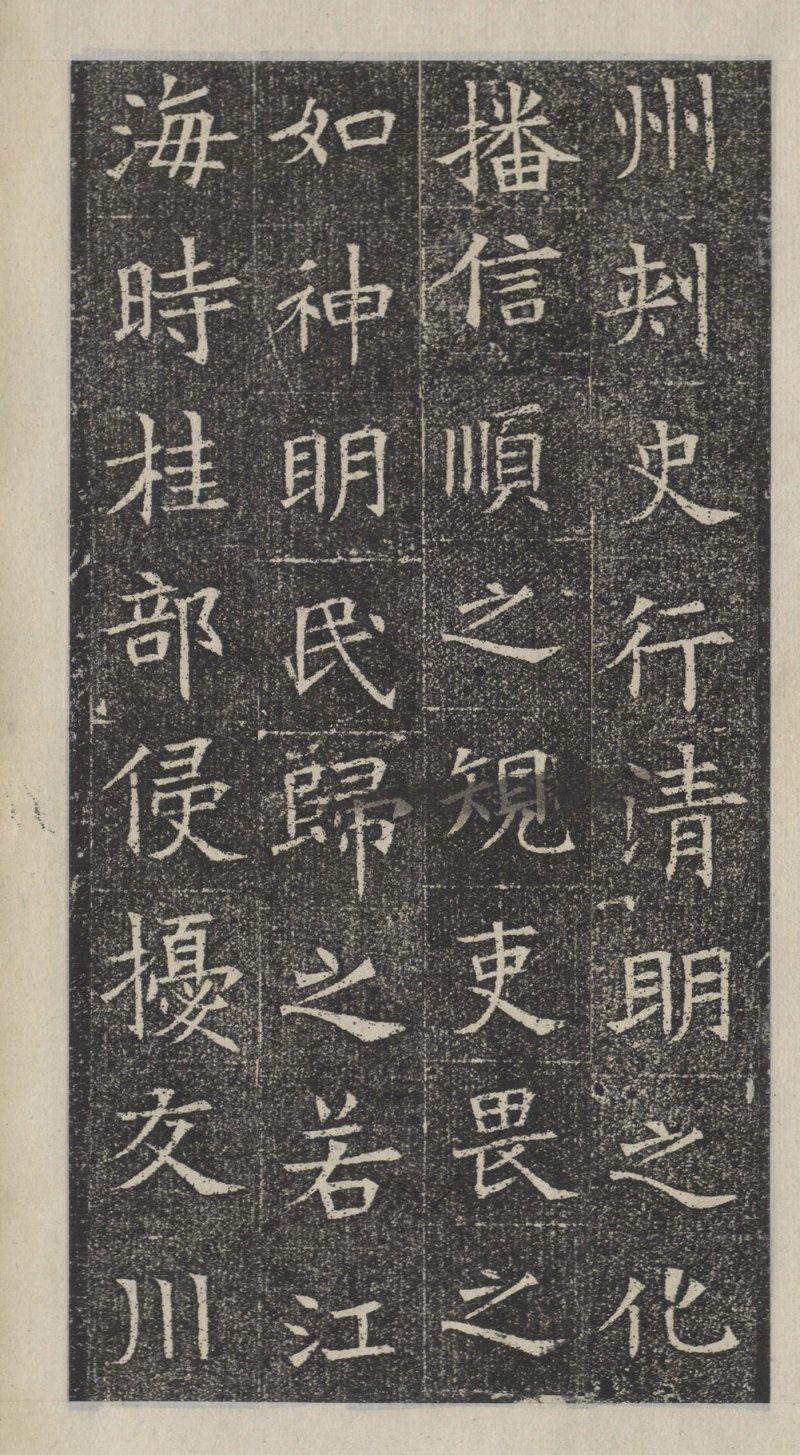 州刾史行清明之化
播信順之䂓吏畏之
如神明民歸之若江
海時桂部侵擾友川